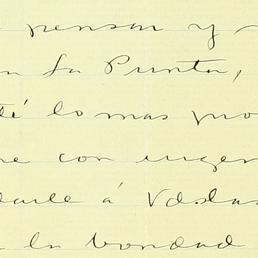 pensar y
La Punta,
té lo mas pro
con urgen
darle á Vdslas
la bondad